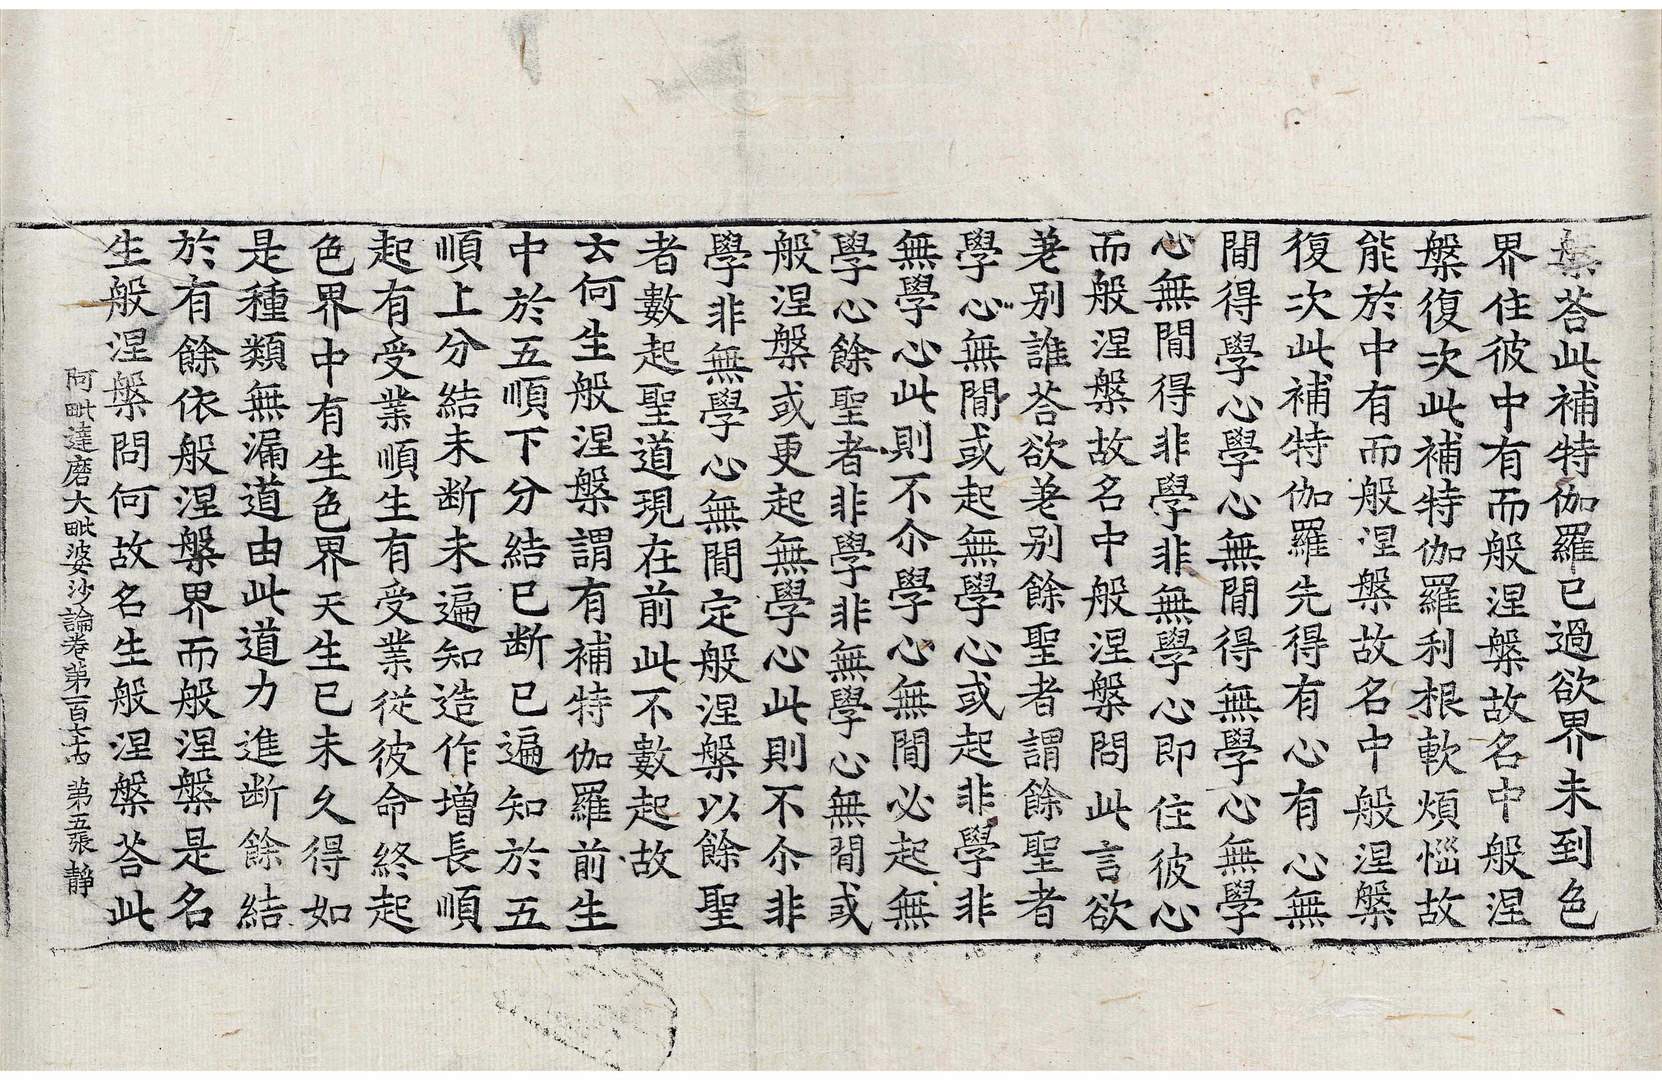 槃荅此補特伽羅已過欲界未到色
界住彼中有而般涅槃故名中般涅
槃復次此補特伽羅利根軟煩惱故
能於中有而般涅槃故名中般涅槃
復次此補特伽羅先得有心有心無
間得學心學心無間得無學心無學
心無間得非學非無學心即住彼心
而般涅槃故名中般涅槃問此言欲
差別誰荅欲差別餘聖者謂餘聖者
學心無間或起無學心或起非學非
無學心此則不尒學心無間必起無
學心餘聖者非學非無學心無間或
般涅槃或更起無學心此則不尒非
學非無學心無間定般涅槃以餘聖
者數起聖道現在前此不數起故
云何生般涅槃謂有補特伽羅前生
中於五順下分結已断已遍知於五
順上分結未断未遍知造作增長順
起有受業順生有受業從彼命終起
色界中有生色界天生已未久得如
是種類無漏道由此道力進断餘結
於有餘依般涅槃界而般涅槃是名
生般涅槃問何故名生般涅槃荅此
阿毗達磨大毗婆沙論卷第一百七十四 第五張 靜